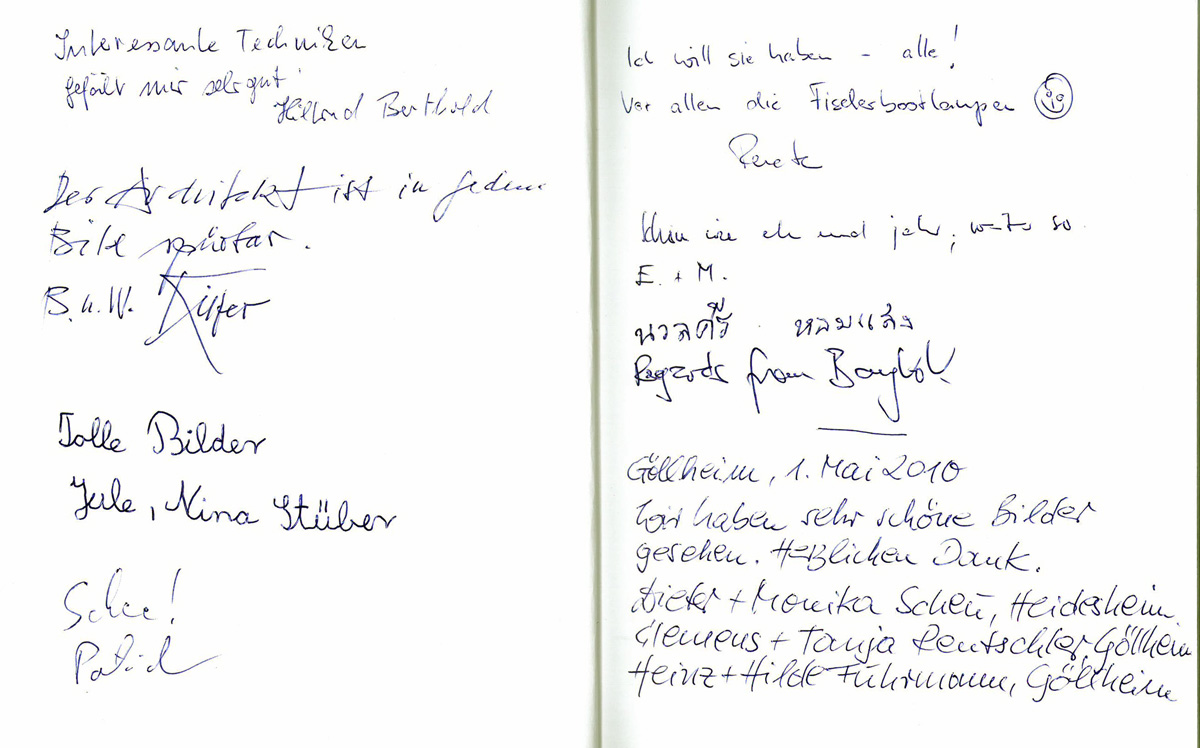 Interessante Techniken
gefällt mir sehr gut!
Berthold
Der Architekt ist in jedem
Bild spürbar.
B. u. W.
Tolle Bilder
Jule, Nina Stüber
Schee!
Patrick
Ich will sie haben - alle!
Vor allen die Fischerbootlampen
Renate
Schön wie eh und jeh, weiter so
E. + M.
นวลศรี หอมแสง
Regards from Bangkok!
Göllheim, 1. Mai 2010
Wir haben sehr schöne Bilder
gesehen. Herzlichen Dank.
Dieter + Monika Scheu, Heidesheim
Clemens + Tanja Rentschler, Göllheim
Heinz + Hilde Fuhrmann, Göllheim